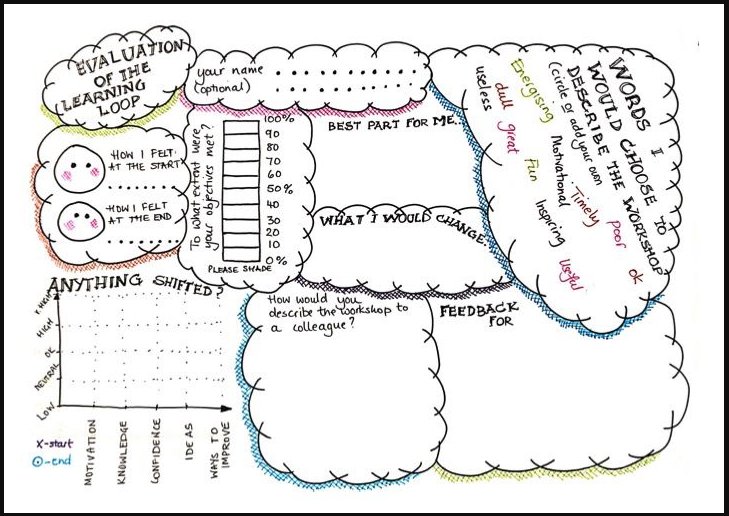 EVALUATION
OF THE
LEARNING
LOOP
your name
(optional)
HOW I FELT
AT THE START
HOW I FELT
AT THE END
To what extent were
your objectives met?
100%
90
80
70
60
50%
40
30
20
10
0%
PLEASE SHADE
BEST PART FOR ME...
WHAT I WOULD CHANGE...
WORDS I
WOULD CHOOSE TO
DESCRIBE THE WORKSHOP
(circle or add your own
Energising
Motivational
Timely
poor
ok
dull
great
fun
Inspiring
Useful
useless
ANYTHING SHIFTED?
HIGH
OK
NEUTRAL
LOW
MOTIVATION
KNOWLEDGE
CONFIDENCE
IDEAS
WAYS TO
IMPROVE
X-start
⊙-end
How would you
describe the workshop to
a colleague?
FEEDBACK
FOR